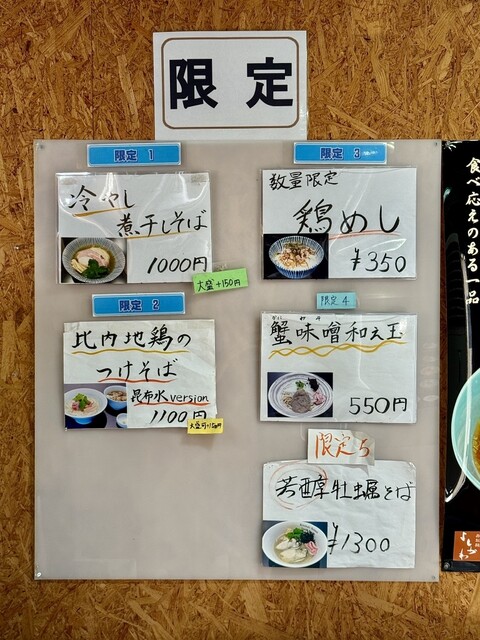 限定
限定 1
冷やし
煮干しそば
1000円
大盛+150円
限定 2
比内地鶏の
つけそば
昆布水version
1100円
限定 3
数量限定
鶏めし
¥350
限定 4
蟹味噌和え玉
550円
限定5
牡蠣そば
¥1300
食べ応えのある一品
よしかわ